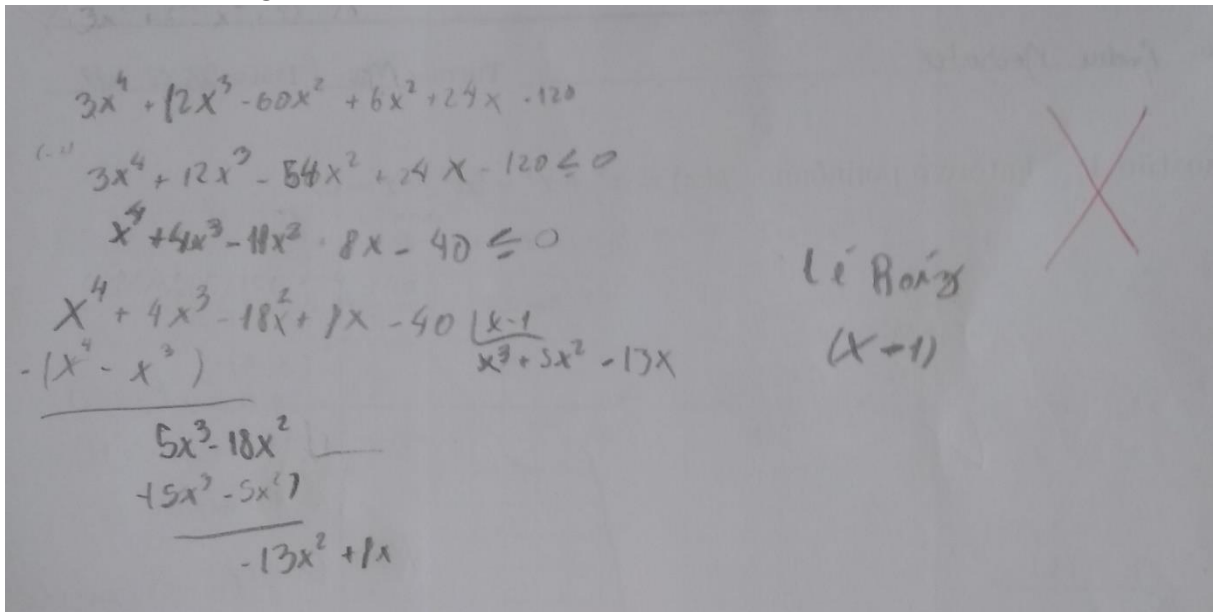 3x⁴ + 12x³ - 60x² + 6x² + 24x - 120
3x⁴ + 12x³ - 54x² + 24x - 120 ≤ 0
x⁴ + 4x³ - 18x² · 8x - 40 ≤ 0
x⁴ + 4x³ - 18x² + 8x - 40 | x-1
-(x⁴ - x³)
x³ + 5x² - 13x
5x³ - 18x²
-(5x³ - 5x²)
-13x² + 8x
(x-1)